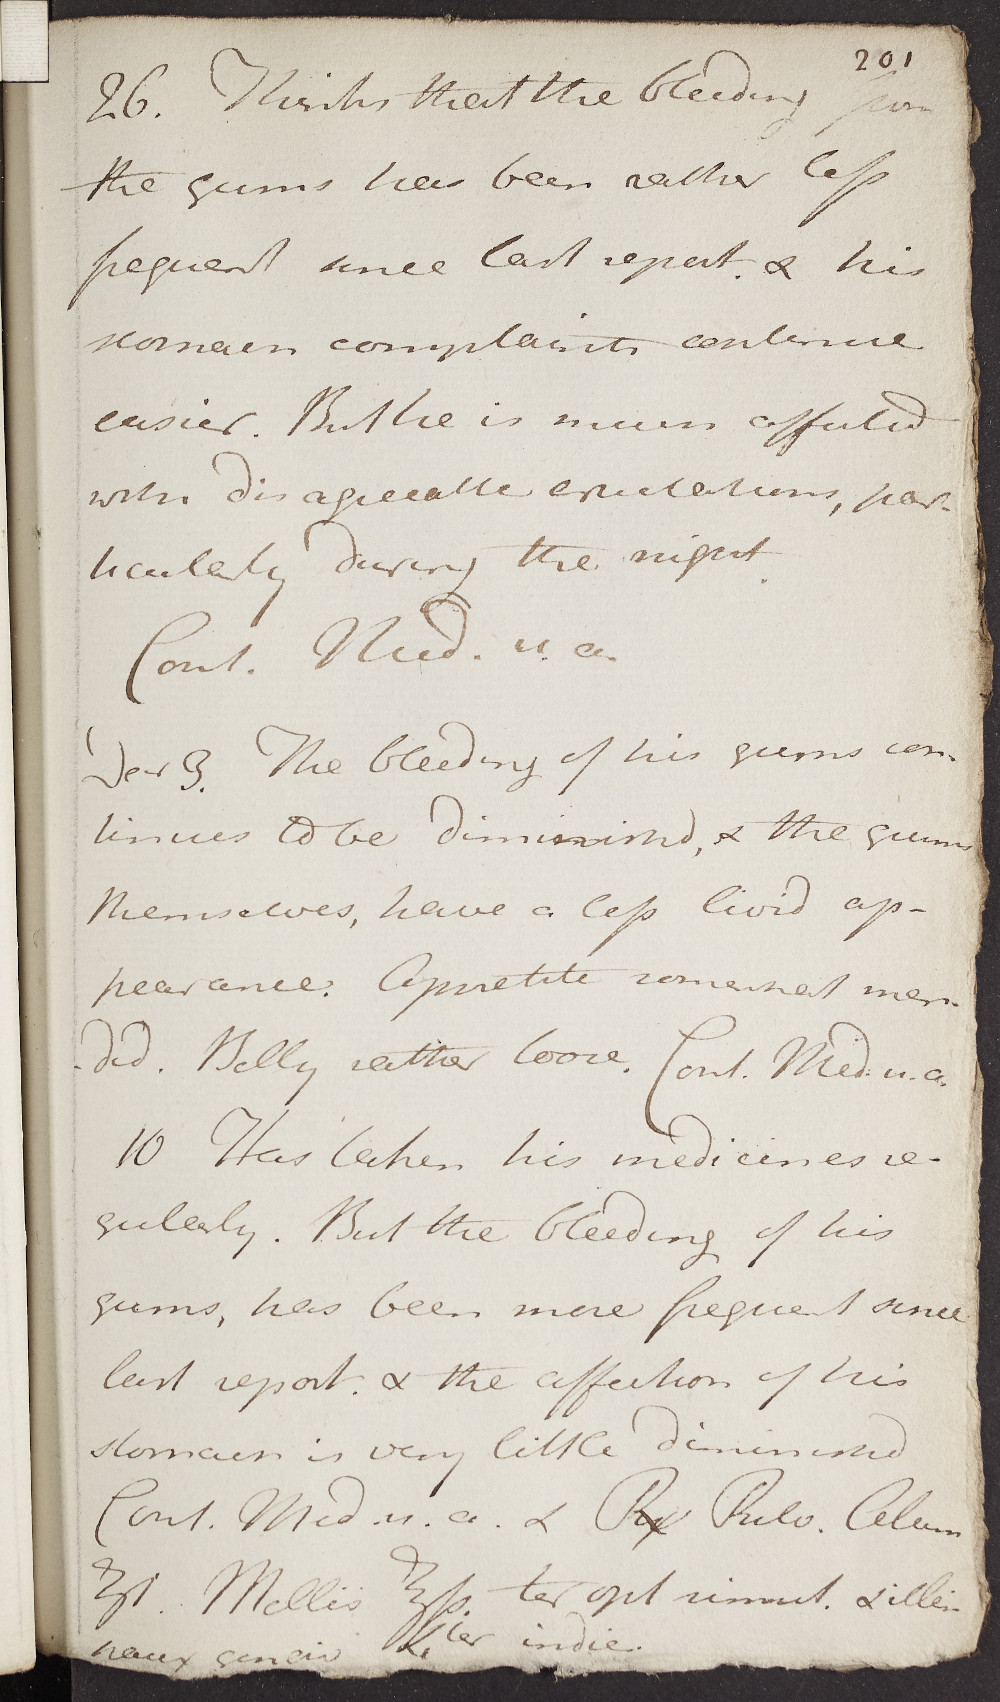 201
26. Thinks that the bleeding from
the gums has been rather less
frequent since last report. & his
stomach complaints continue
easier. But he is much affected
with disagreeable eructations, par-
ticularly during the night.
Cont. Med. u. a.
Decr 3. The bleeding of his gums con-
tinues to be diminishd, & the gums
themselves, have a less livid ap-
pearance. Appetite somewhat men-
-ded. Belly rather loose. Cont. Med. u. a.
10 Has taken his medicines re-
gularly. But the bleeding of his
gums, has been more frequent since
last report. & the affection of his
stomach is very little diminishd
Cont. Med. u. a. & Rx Pulv. Alum
ʒi. Mellis ℥ss. ter opt simul. & illin
gencis ter indie.